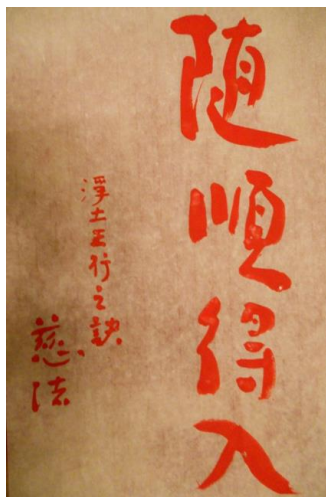 随順得入
淨土正行之訣
慈法